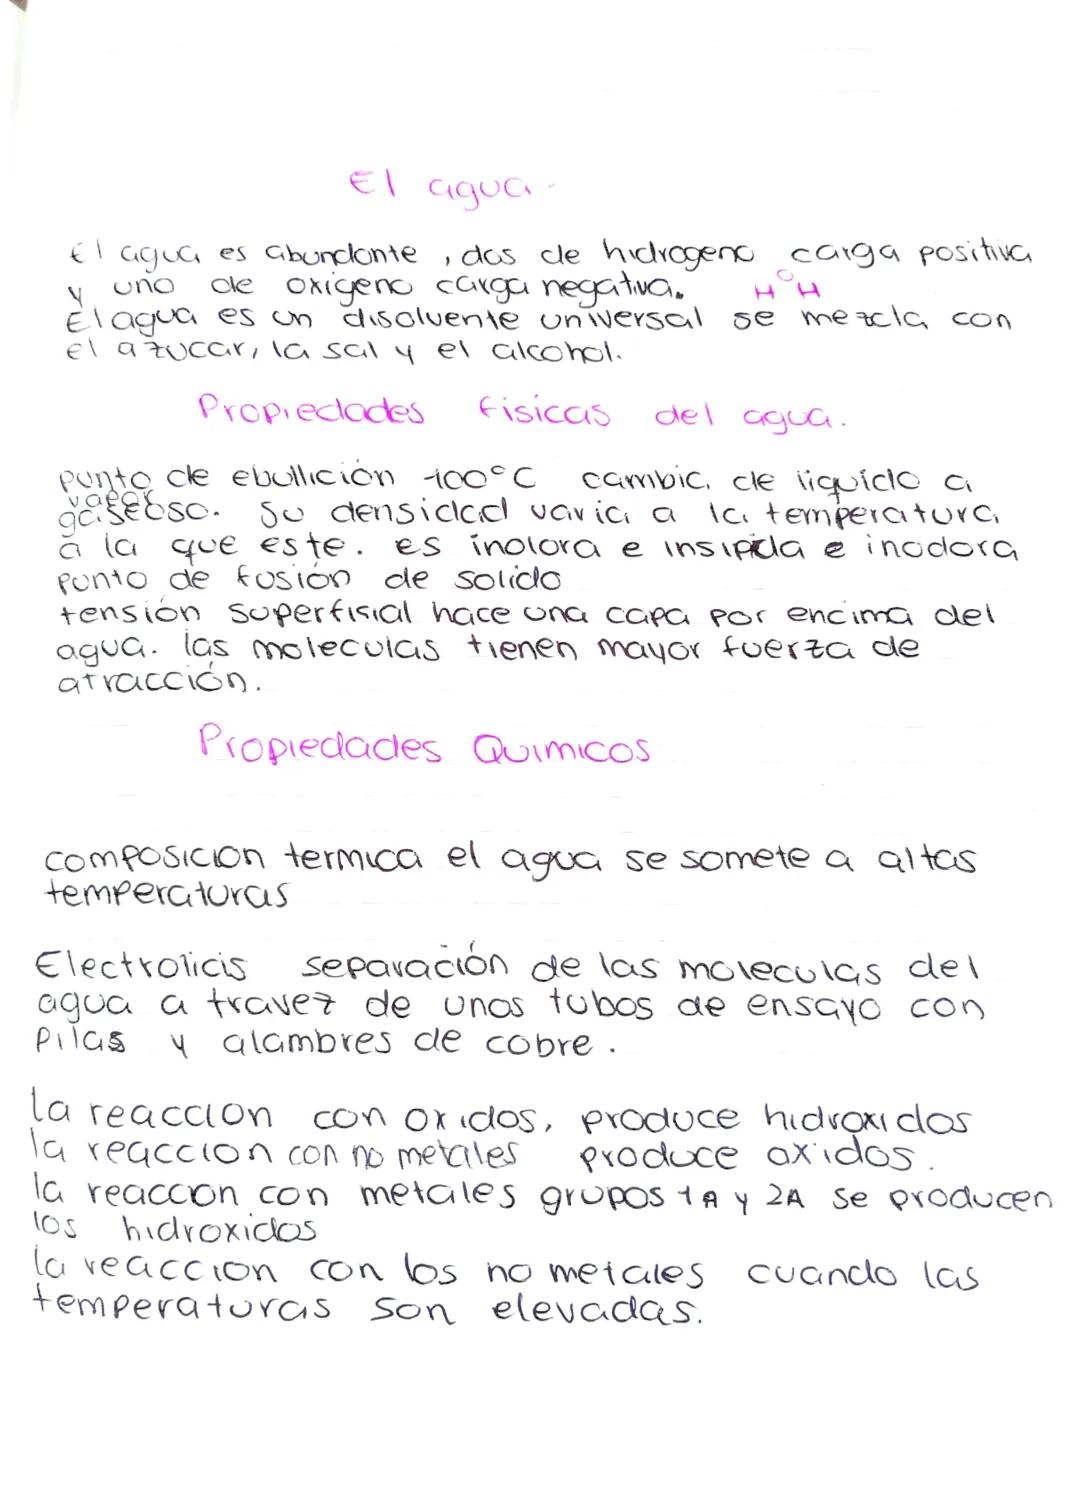 El agua.
El agua es abundante, dos de hidrogeno carga positiva
y uno de oxigeno carga negativa. H O H
El agua es un disolvente universal se mezcla con
el azucar, la sal y el alcohol.
Propiedades fisicas del agua.
punto de ebullición 100°C cambia de liquido a
vapor
gaseoso. Su densidad varia a la temperatura
a la que este. es inolora e insipida e inodora
punto de fusión de solido
tensión superfisial hace una capa por encima del
agua. las moleculas tienen mayor fuerza de
atracción.
Propiedades Quimicos
composicion termica el agua se somete a altas
temperaturas
Electrolicis separación de las moleculas del
agua a travez de unos tubos de ensayo con
pilas y alambres de cobre.
la reaccion con oxidos, produce hidroxidos
la reaccion con no metales produce oxidos.
la reaccion con metales grupos 1A y 2A se producen
los hidroxidos
la reaccion con los no metales cuando las
temperaturas son elevadas.